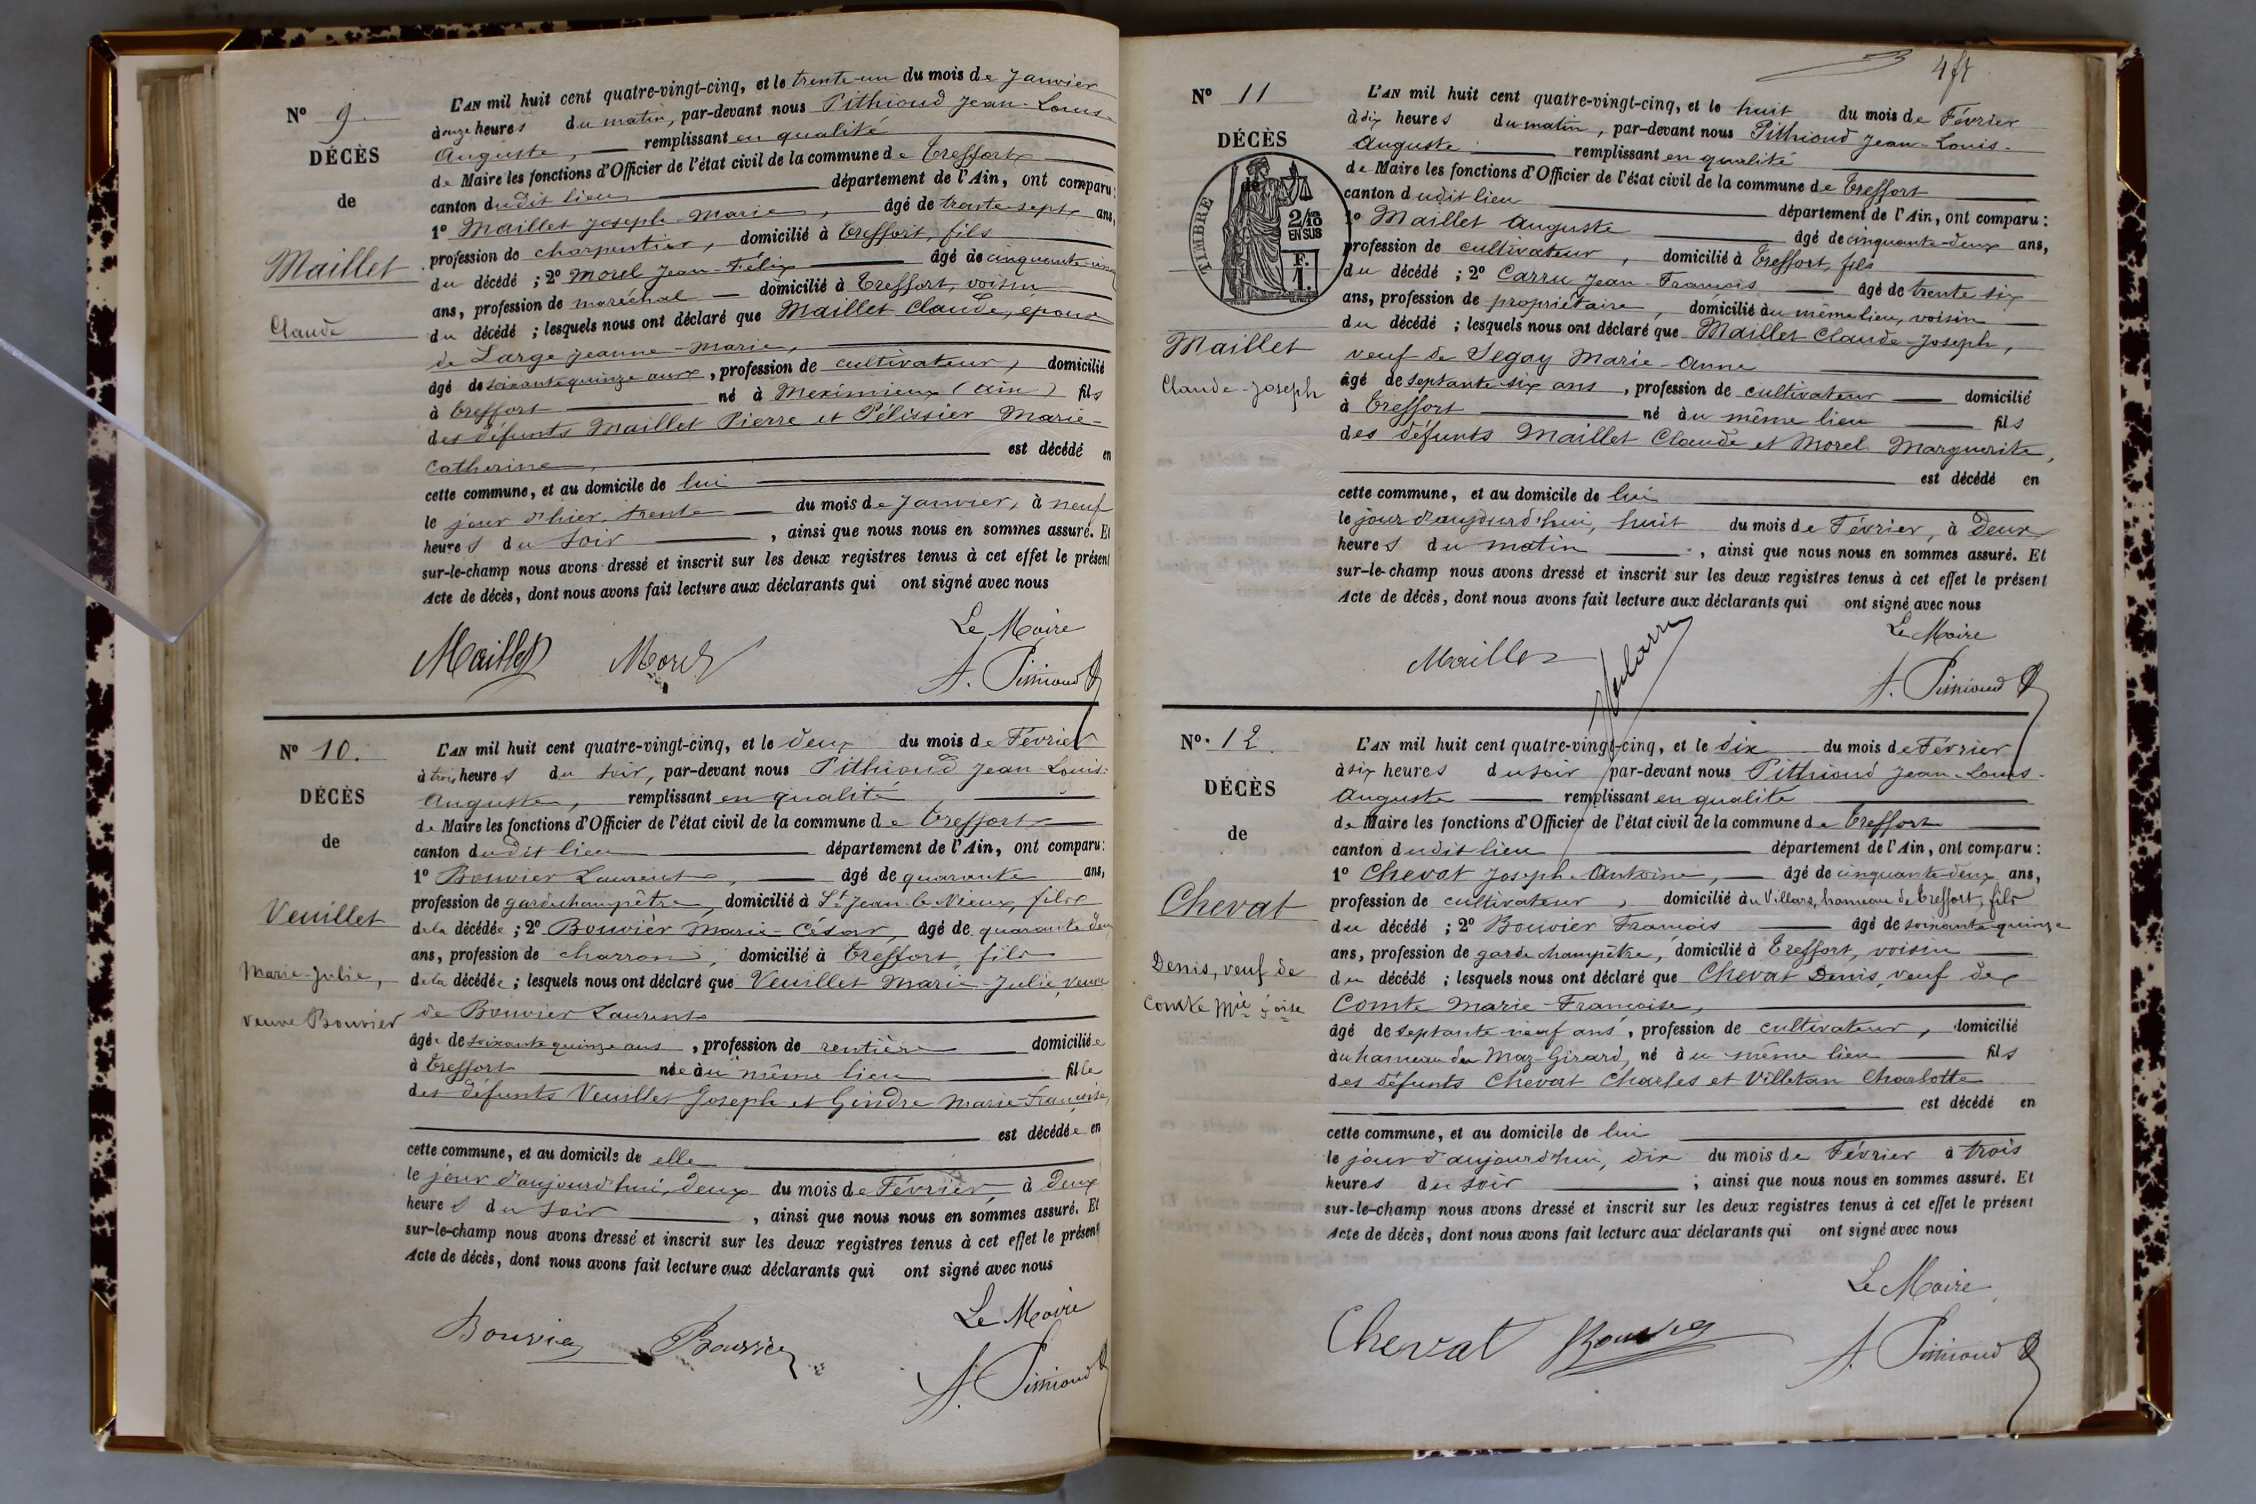 Nº 9.
DÉCÈS
de
Maillet
Claude
L'AN mil huit cent quatre-vingt-cinq, et le trente-un du mois de Janvier
à onze heures du matin, par-devant nous Pithioud Jean-Louis-
Auguste, remplissant en qualité
de Maire les fonctions d'Officier de l'état civil de la commune de Treffort
canton dudit lieu département de l'Ain, ont comparu:
1º Maillet Joseph-Marie, âgé de trente-sept ans,
profession de charpentier, domicilié à Treffort, fils
du décédé ; 2º Morel Jean-Félix âgé de cinquante-un
ans, profession de maréchal domicilié à Treffort, voisin
du décédé ; lesquels nous ont déclaré que Maillet Claude, époux
de Large Jeanne-Marie,
âgé de soixante quinze ans, profession de cultivateur, domicilié
à Treffort né à Meximieux (Ain) fils
des défunts Maillet Pierre et Pélissier Marie-
Catherine, est décédé en
cette commune, et au domicile de lui
le jour d'hier, trente du mois de Janvier, à neuf
heures du soir, ainsi que nous nous en sommes assuré. Et
sur-le-champ nous avons dressé et inscrit sur les deux registres tenus à cet effet le présent
Acte de décès, dont nous avons fait lecture aux déclarants qui ont signé avec nous
Le Maire
Maillet Morel A. Pithioud
Nº 10.
DÉCÈS
de
Veuillet
Marie-Julie,
veuve Bouvier
L'AN mil huit cent quatre-vingt-cinq, et le deux du mois de Février
à trois heures du soir, par-devant nous Pithioud Jean-Louis-
Auguste, remplissant en qualité
de Maire les fonctions d'Officier de l'état civil de la commune de Treffort
canton dudit lieu département de l'Ain, ont comparu:
1º Bouvier Laurent, âgé de quarante ans,
profession de garde champêtre, domicilié à St Jean-le-Vieux, fils
de la décédée ; 2º Bouvier Marie-César, âgé de quarante deux
ans, profession de charron, domicilié à Treffort, fils
de la décédée ; lesquels nous ont déclaré que Veuillet Marie-Julie, veuve
de Bouvier Laurent
âgée de soixante quinze ans, profession de rentière domiciliée
à Treffort née au même lieu fille
des défunts Veuillet Joseph et Gindre Marie-Françoise,
est décédée en
cette commune, et au domicile de elle
le jour d'aujourd'hui, deux du mois de Février, à deux
heures du soir, ainsi que nous nous en sommes assuré. Et
sur-le-champ nous avons dressé et inscrit sur les deux registres tenus à cet effet le présent
Acte de décès, dont nous avons fait lecture aux déclarants qui ont signé avec nous
Le Maire
Bouvier Bouvier A. Pithioud
Nº 11
DÉCÈS
de
TIMBRE
2/10
EN SUS
F.
1.
Maillet
Claude-Joseph
L'AN mil huit cent quatre-vingt-cinq, et le huit du mois de Février
à dix heures du matin, par-devant nous Pithioud Jean-Louis-
Auguste remplissant en qualité
de Maire les fonctions d'Officier de l'état civil de la commune de Treffort
canton dudit lieu département de l'Ain, ont comparu:
1º Maillet Auguste âgé de cinquante-deux ans,
profession de cultivateur, domicilié à Treffort, fils
du décédé ; 2º Carru Jean-François âgé de trente six
ans, profession de propriétaire, domicilié au même lieu, voisin
du décédé ; lesquels nous ont déclaré que Maillet Claude-Joseph,
veuf de Segay Marie-Anne
âgé de septante-six ans, profession de cultivateur domicilié
à Treffort né au même lieu fils
des défunts Maillet Claude et Morel Marguerite,
est décédé en
cette commune, et au domicile de lui
le jour d'aujourd'hui, huit du mois de Février, à deux
heures du matin, ainsi que nous nous en sommes assuré. Et
sur-le-champ nous avons dressé et inscrit sur les deux registres tenus à cet effet le présent
Acte de décès, dont nous avons fait lecture aux déclarants qui ont signé avec nous
Le Maire
Maillet A. Pithioud
Nº 12
DÉCÈS
de
Chevat
Denis, veuf de
Comte Mie çoise
L'AN mil huit cent quatre-vingt-cinq, et le dix du mois de Février
à six heures du soir par-devant nous Pithioud Jean-Louis-
Auguste remplissant en qualité
de Maire les fonctions d'Officier de l'état civil de la commune de Treffort
canton dudit lieu département de l'Ain, ont comparu:
1º Chevat Joseph-Antoine, âgé de cinquante-deux ans,
profession de cultivateur, domicilié au Villars, hameau de Treffort, fils
du décédé ; 2º Bouvier François âgé de soixante quinze
ans, profession de garde champêtre, domicilié à Treffort, voisin
du décédé ; lesquels nous ont déclaré que Chevat Denis, veuf de
Comte Marie-Françoise,
âgé de septante-neuf ans, profession de cultivateur, domicilié
au hameau du Maz-Girard, né au même lieu fils
des défunts Chevat Charles et Villetan Charlotte
est décédé en
cette commune, et au domicile de lui
le jour d'aujourd'hui, dix du mois de Février à trois
heures du soir ; ainsi que nous nous en sommes assuré. Et
sur-le-champ nous avons dressé et inscrit sur les deux registres tenus à cet effet le présent
Acte de décès, dont nous avons fait lecture aux déclarants qui ont signé avec nous
Le Maire
Chevat Bouvier A. Pithioud